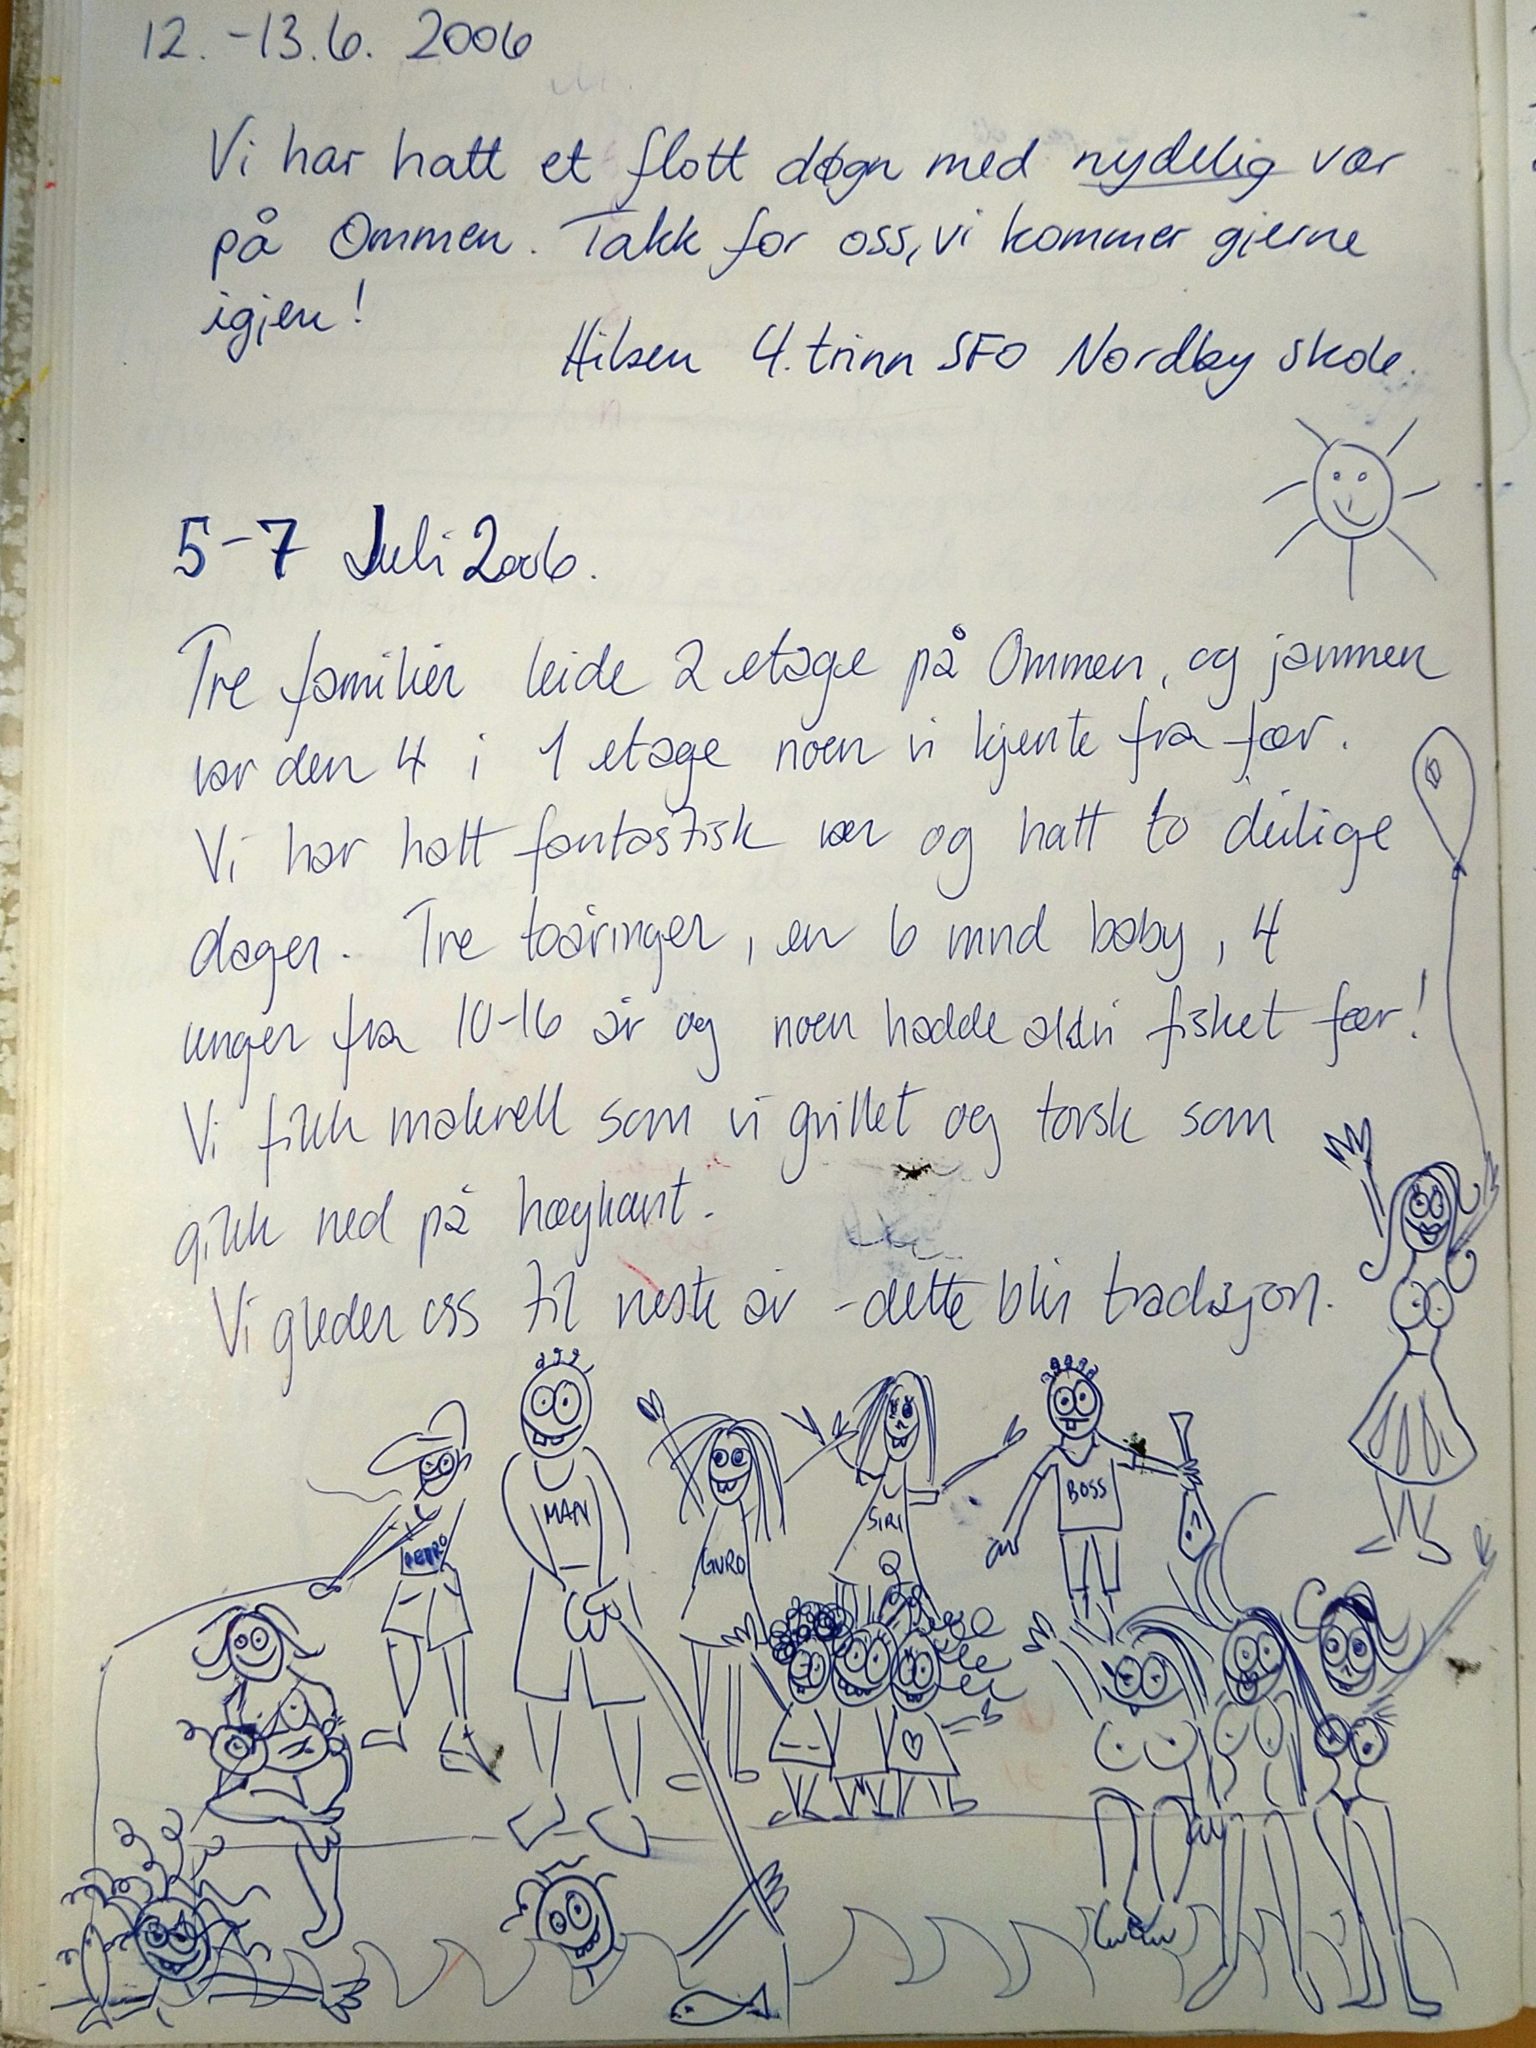 12.-13.6. 2006
Vi har hatt et flott døgn med nydelig vær
på Ommen. Takk for oss, vi kommer gjerne
igjen!
Hilsen 4. trinn SFO Nordby skole.
5-7 Juli 2006.
Tre familier leide 2 etage på Ommen, og jammen
var den 4 i 1 etage noen vi kjente fra før.
Vi har hatt fantastisk vær og hatt to deilige
dager. Tre toåringer, en 6 mnd baby, 4
unger fra 10-16 år og noen hadde aldri fisket før!
Vi fikk makrell som vi grillet og torsk som
gikk ned på høykant.
Vi gleder oss til neste år - dette blir tradisjon.
PETRO
MAN
GURO
SIRI
BOSS